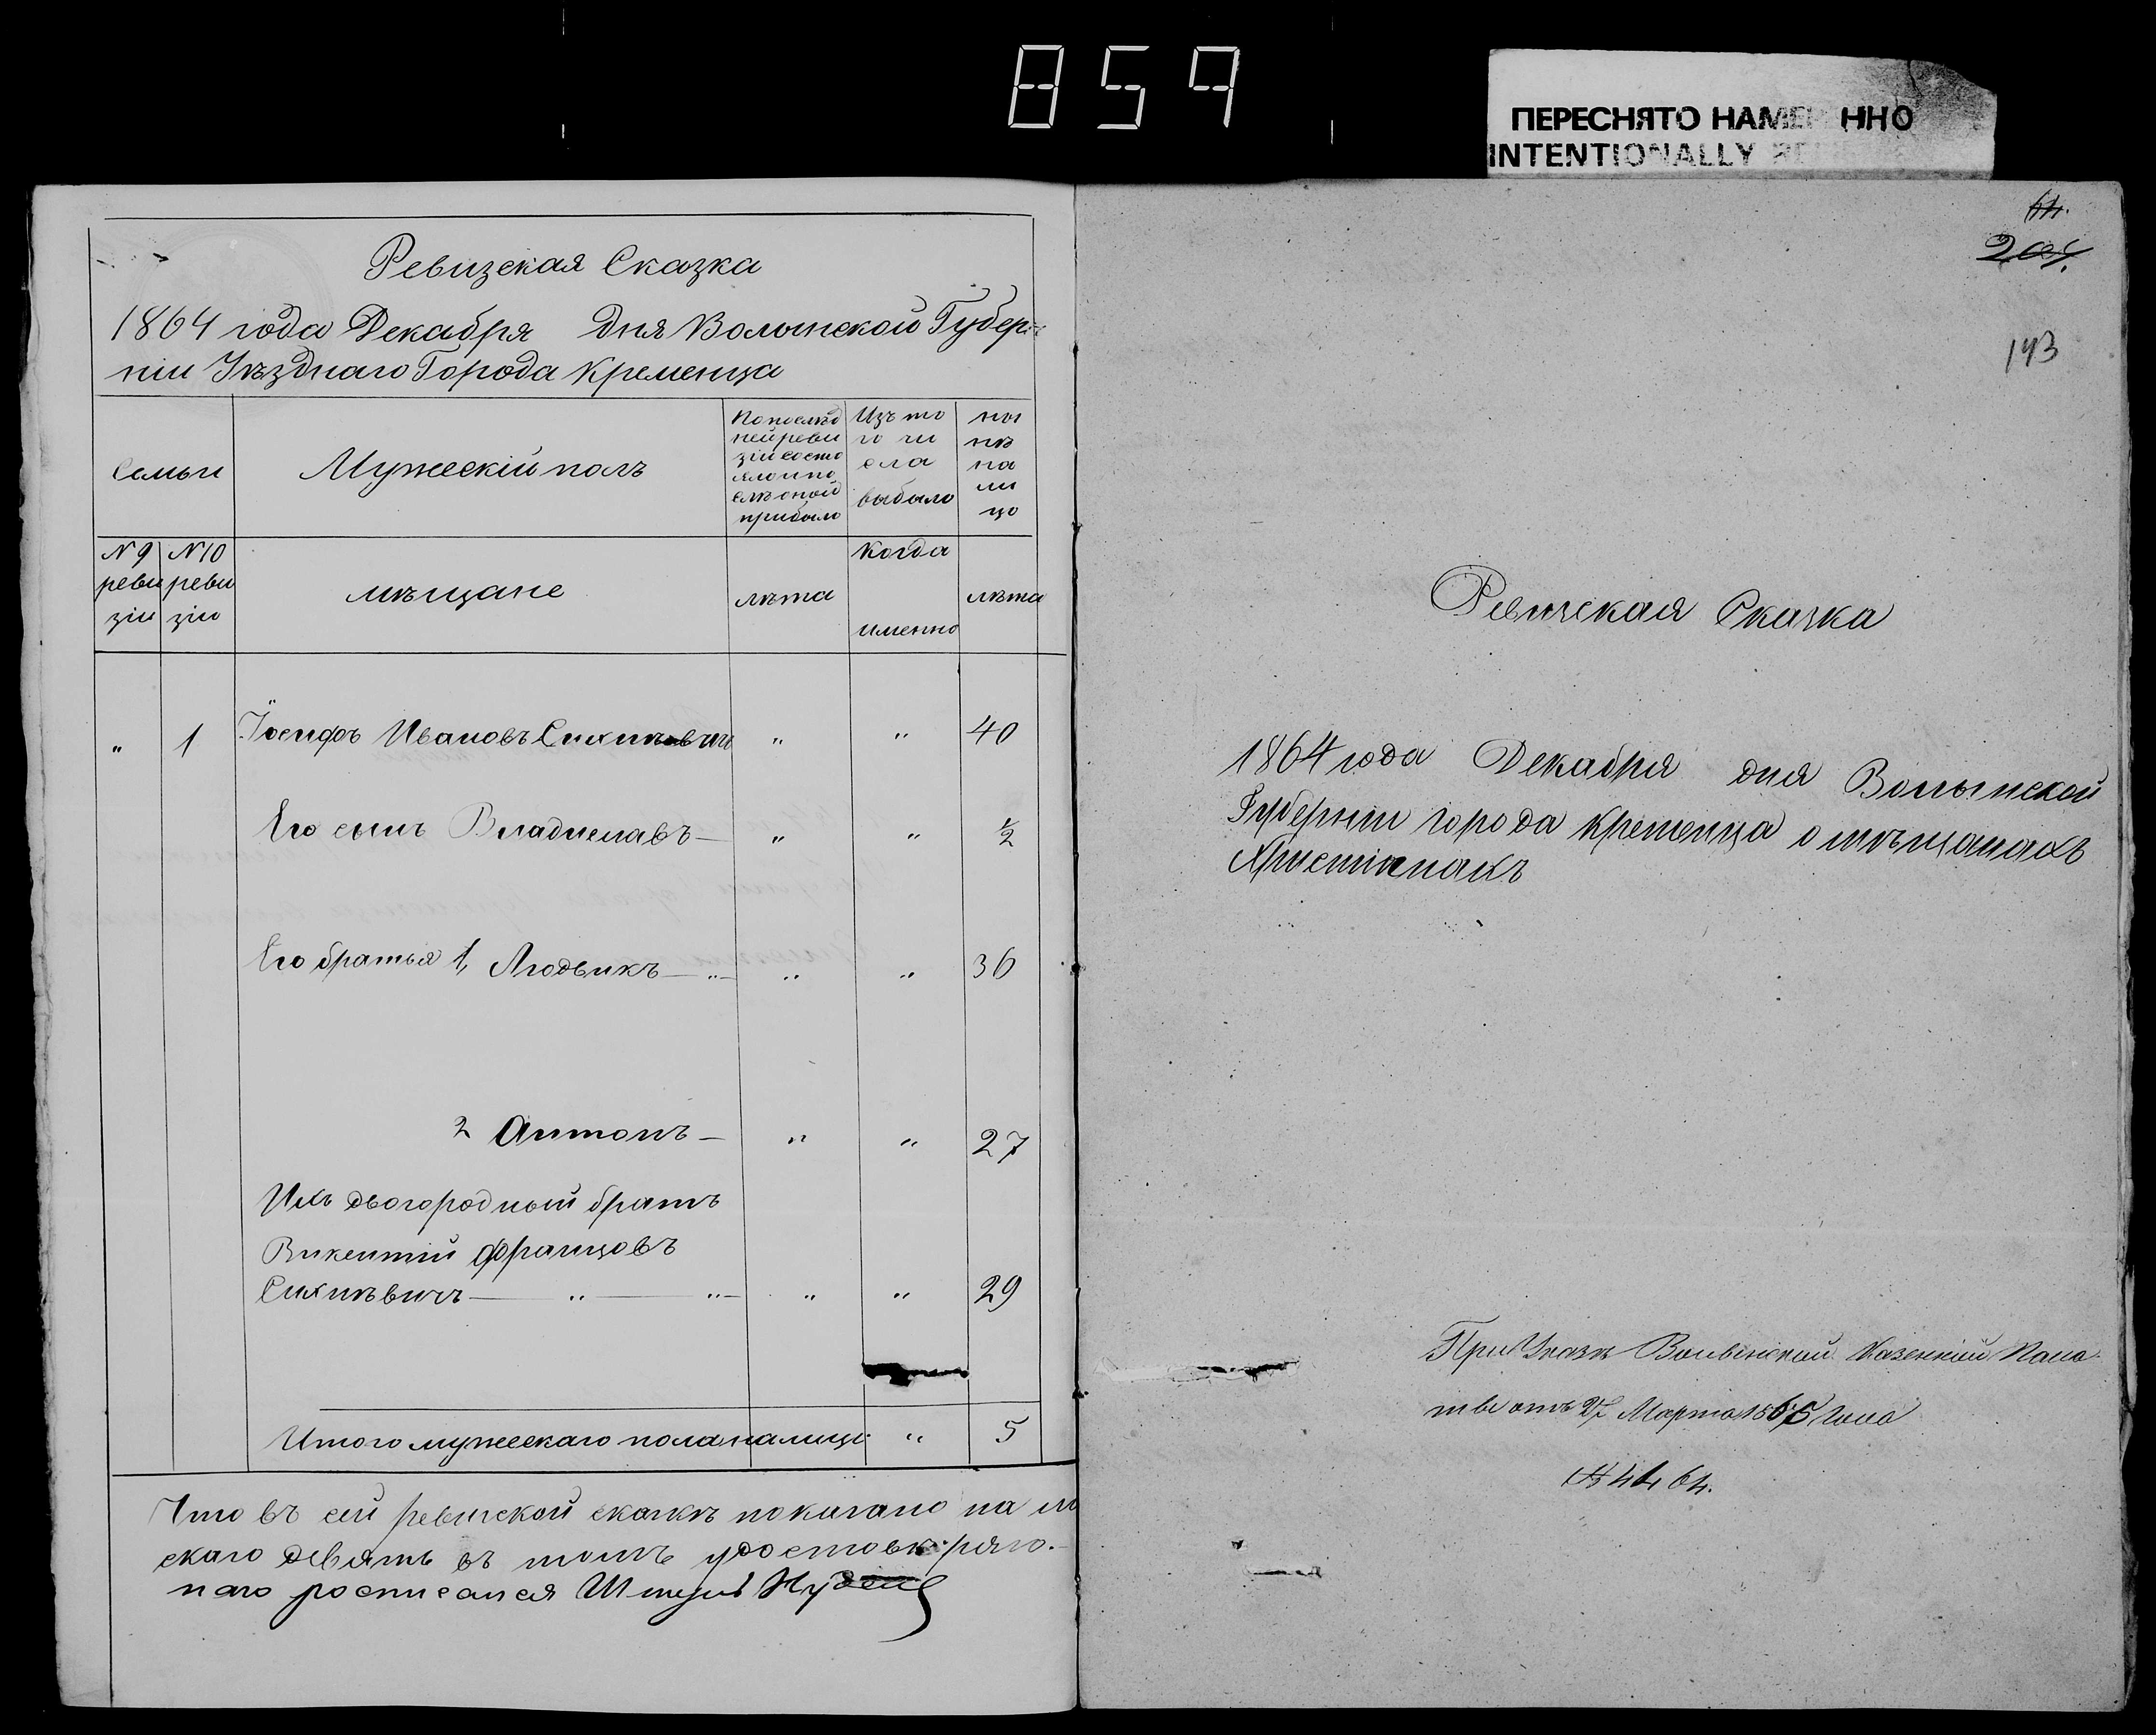 859
ПЕРЕСНЯТО НАМЕ ННО
INTENTIONALLY
Ревизская Сказка
1864 года Декабря дня Волынской Губер-
ніи Уѣзднаго Города Кременца
Семьи
Мужескій полъ
По послѣд
ней реви
зіи состо
яло и по
слѣ оной
прибыло
Изъ то
го чи
сла
выбыло
ны
нѣ
на
ли
цо
№ 9
реви
зіи
№ 10
реви
зіи
мѣщане
лѣта
когда
именно
лѣта
" 1 Іосифъ Ивановъ " " 40
Его сынъ Владиславъ — " " ½
Его братья 1, Людвикъ — " — " " 36
2 Антонъ — " " 27
Ихъ двогородный братъ
Викентій Францовъ
Сихнѣвичъ — " — " — " " 29
Итого мужескаго пола налицо " 5
Что въ сей ревизской сказкѣ показано на ли
скаго девять въ томъ
наго росписался
64.
204.
143
Ревизская Сказка
1864 года Декабря дня Волынской
Губерніи города Кременца о мѣщанахъ
Христіанахъ
При Указѣ Волынской Казенной Пала-
ты отъ 27 Марта 1865 года
№ 4464.